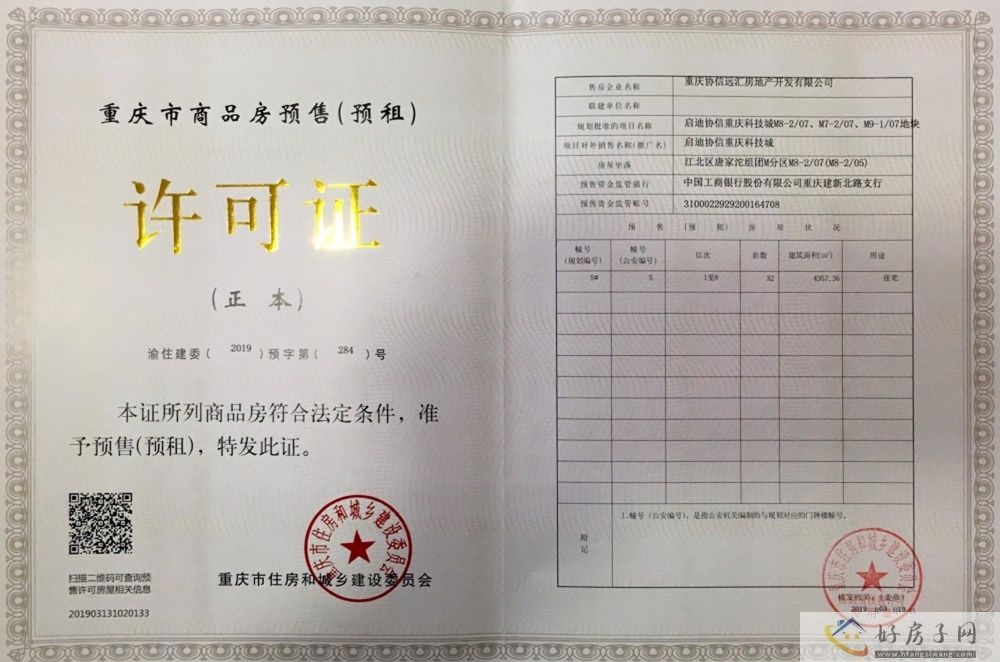 重庆市商品房预售(预租)
许可证
(正 本)
渝住建委( 2019 )预字第( 284 )号
本证所列商品房符合法定条件，准
予预售(预租)，特发此证。
扫描二维码可查询预
售许可房屋相关信息
201903131020133
重庆市住房和城乡建设委员会
重庆市住房和城乡建设委员会
售房企业名称 重庆协信远汇房地产开发有限公司
联建单位名称
规划批准的项目名称 启迪协信重庆科技城M8-2/07、M7-2/07、M9-1/07地块
项目对外销售名称(推广名) 启迪协信重庆科技城
房屋坐落 江北区唐家沱组团M分区M8-2/07(M8-2/05)
预售资金监管银行 中国工商银行股份有限公司重庆建新北路支行
预售资金监管账号 3100022929200164708
预 售 (预 租) 房 屋 状 况
幢号(规划编号) 幢号(公安编号) 层次 套数 建筑面积(m²) 用途
5# 5 1至8 32 4357.36 住宅
附记 1.幢号（公安编号），是指公安机关编制的与规划对应的门牌楼幢号。
重庆市住房和城乡建设委员会
2019 03 19
好房子网
www.hfangziwang.com